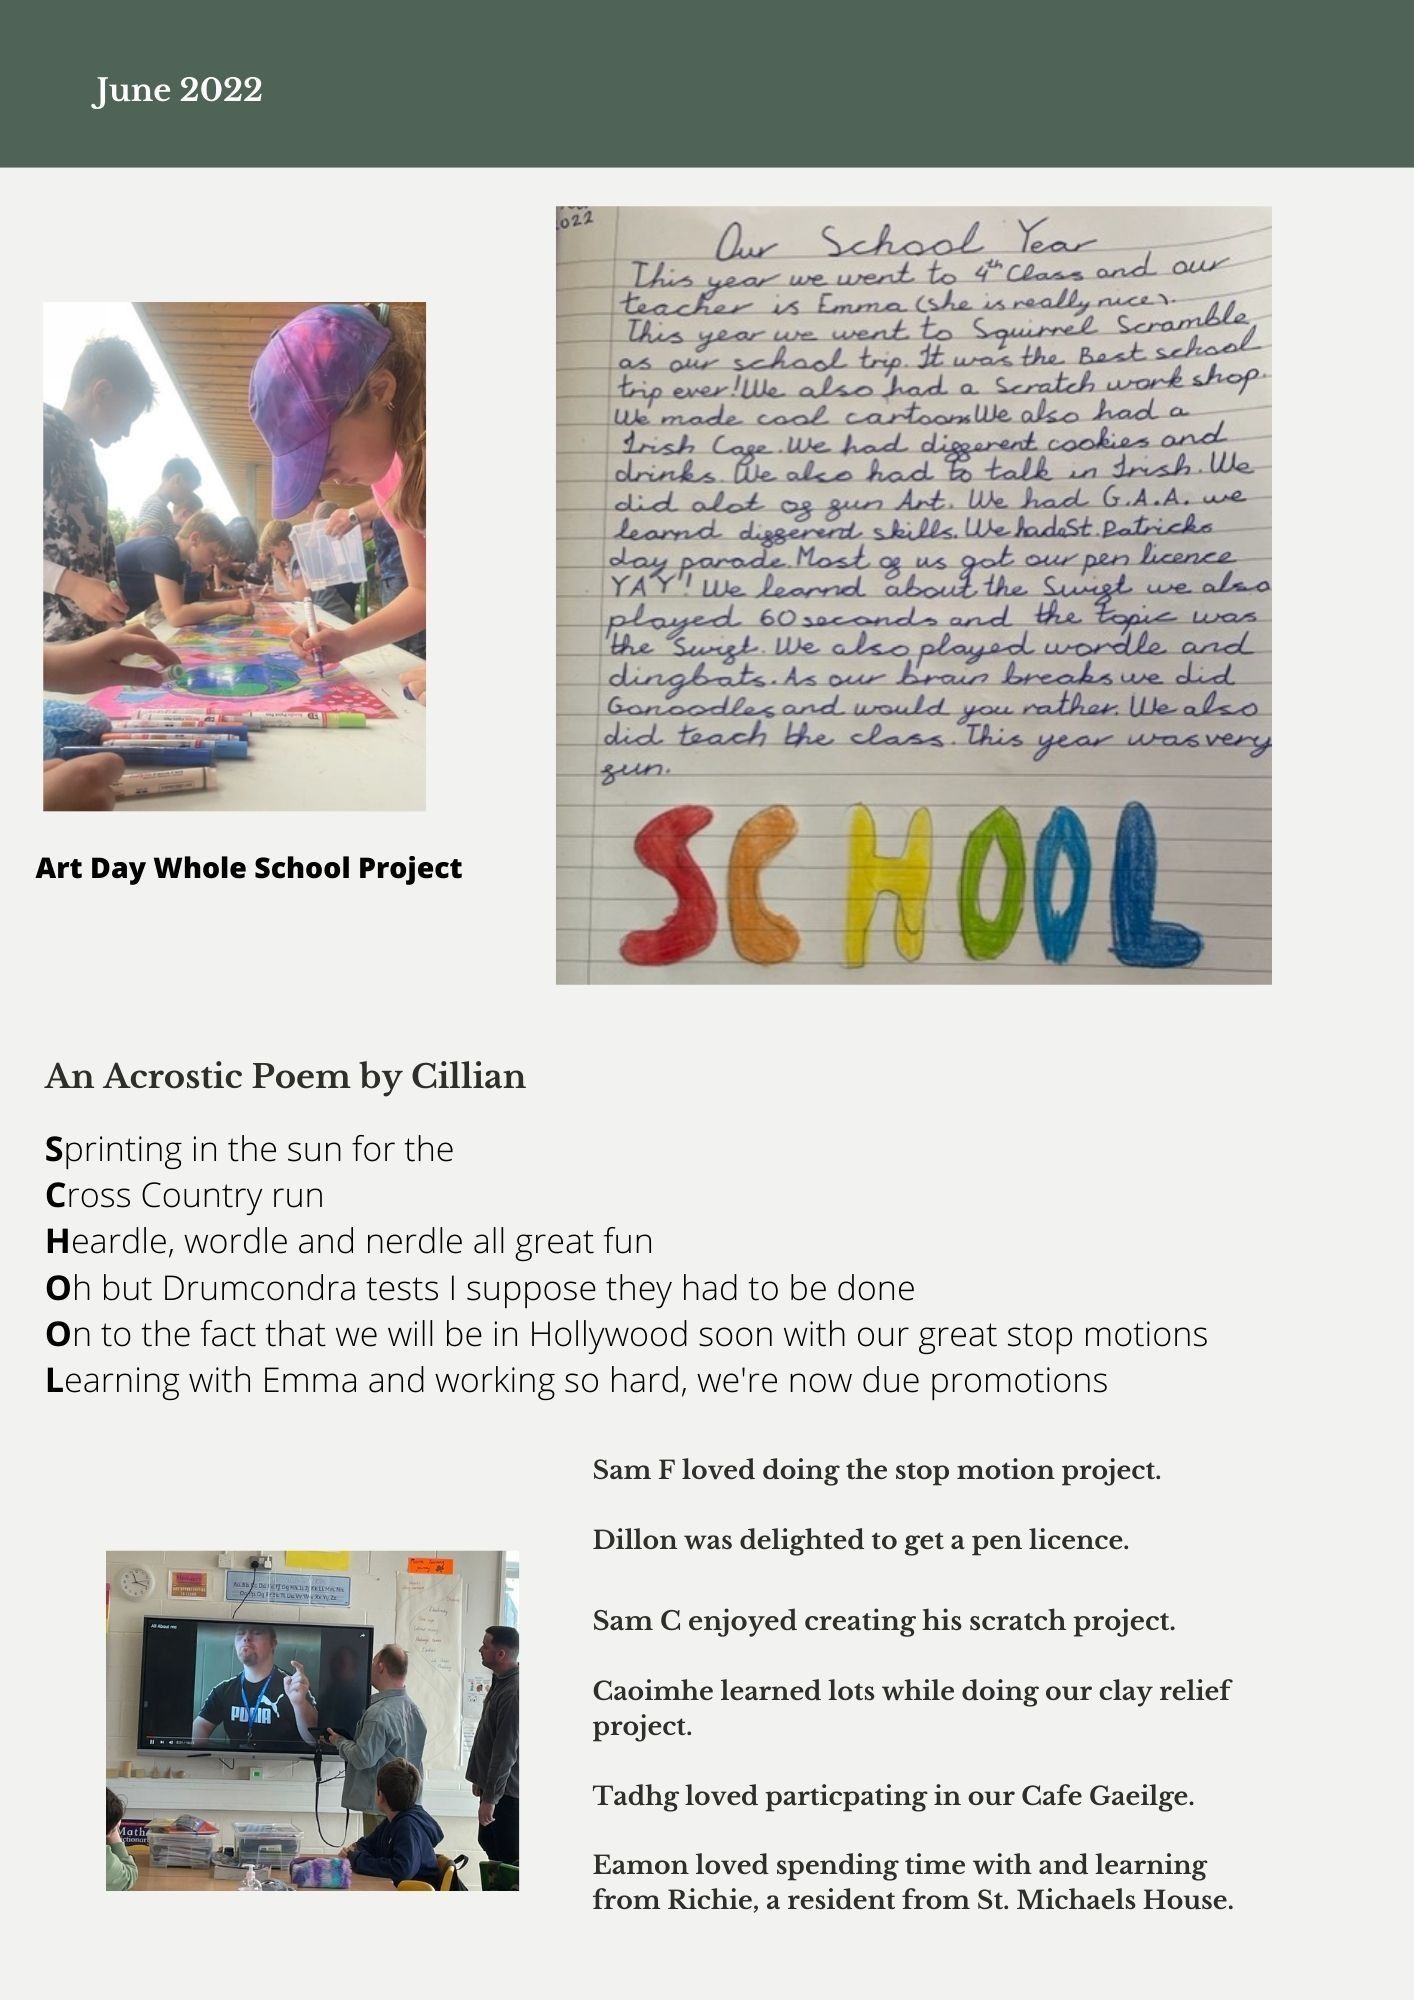 June 2022
2022
Our School Year
This year we went to 4th Class and our
teacher is Emma (she is really nice).
This year we went to Squirrel Scramble
as our school trip. It was the Best school
trip ever! We also had a Scratch work shop.
We made cool cartoons We also had a
Irish Cafe. We had different cookies and
drinks. We also had to talk in Irish. We
did alot of fun Art. We had G.A.A. we
learnd differernt skills. We had a St. Patricks
day parade. Most of us got our pen licence
YAY! We learnd about the Swift we also
played 60 seconds and the topic was
the Swift. We also played wordle and
dingbats. As our brain breaks we did
Gonoodles and would you rather. We also
did teach the class. This year was very
fun.
SCHOOL
Art Day Whole School Project
An Acrostic Poem by Cillian
Sprinting in the sun for the
Cross Country run
Heardle, wordle and nerdle all great fun
Oh but Drumcondra tests I suppose they had to be done
On to the fact that we will be in Hollywood soon with our great stop motions
Learning with Emma and working so hard, we're now due promotions
Sam F loved doing the stop motion project.
Dillon was delighted to get a pen licence.
Sam C enjoyed creating his scratch project.
Caoimhe learned lots while doing our clay relief
project.
Tadhg loved particpating in our Cafe Gaeilge.
Eamon loved spending time with and learning
from Richie, a resident from St. Michaels House.
All About me
PUMA
Math